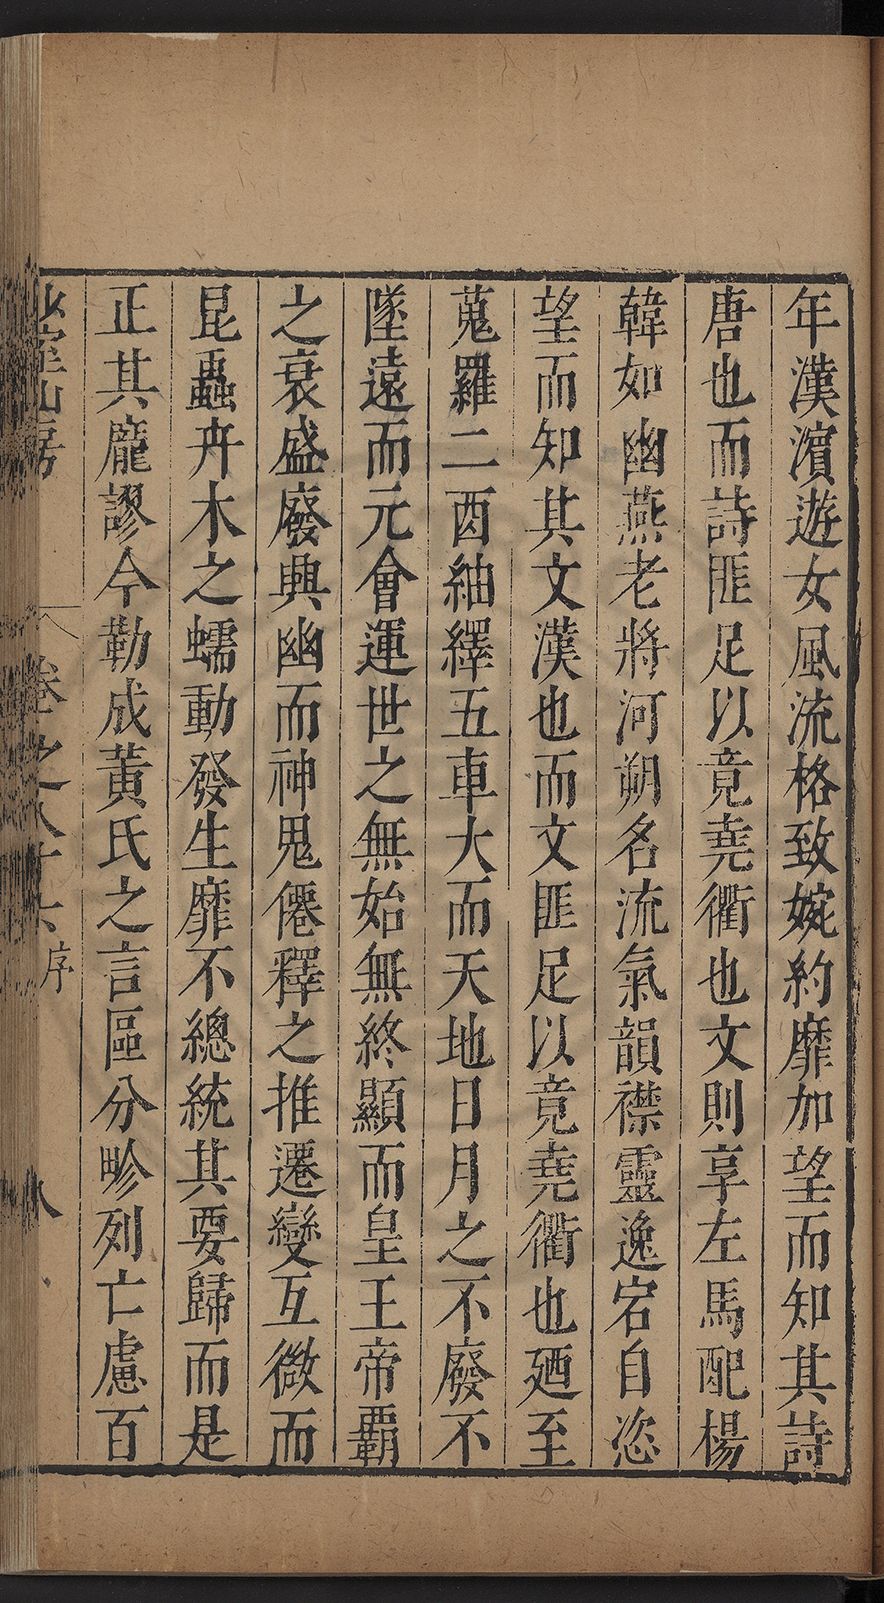 年漢濱遊女風流格致婉約靡加望而知其詩
唐也而詩匪足以竟堯衢也文則享左馬配楊
韓如幽燕老將河朔名流氣韻襟靈逸宕自恣
望而知其文漢也而文匪足以竟堯衢也廼至
蒐羅二酉紬繹五車大而天地日月之不廢不
墜遠而元會運世之無始無終顯而皇王帝覇
之衰盛廢興幽而神鬼僊釋之推遷變互微而
昆蟲卉木之蠕動發生靡不總統其要歸而是
正其龐謬今勒成黃氏之言區分畛列亡慮百
山房
卷之八十六
序
八